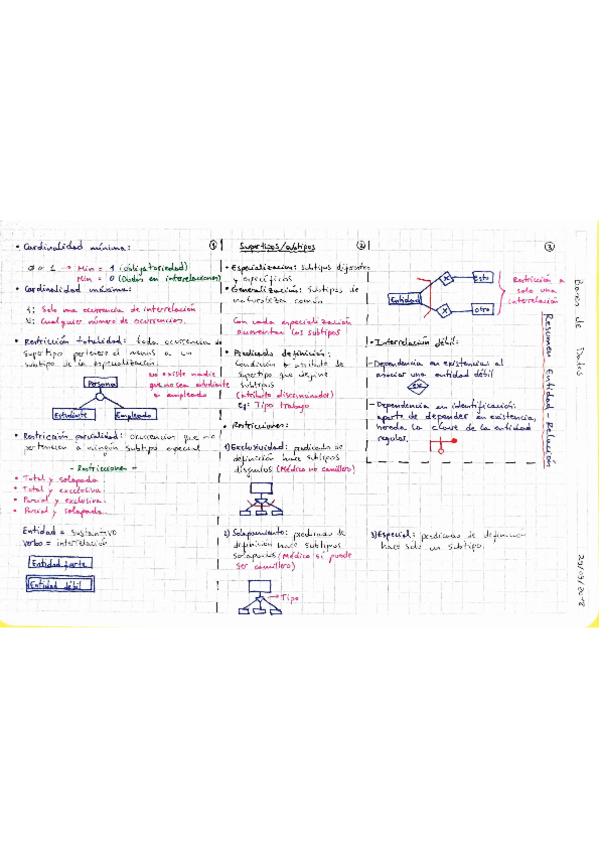 • Cardinalidad mínima: ①
0 o 1 → Min = 1 (Obligatoriedad)
Min = 0 (Dudas en interrelaciones)
• Cardinalidad máxima:
1: Solo una ocurrencia de interrelación
N: Cualquier número de ocurrencias.
• Restricción totalidad: toda ocurrencia de
supertipo pertenece al menos a un
subtipo de la especialización.
no existe nadie
que no sea estudiante
o empleado
Persona
Estudiante
Empleado
• Restricción parcialidad: ocurrencias que no
pertenezcan a ningún subtipo especial
- Restricciones -
• Total y solapada.
• Total y exclusiva.
• Parcial y exclusiva.
• Parcial y solapada.
Entidad = Sustantivo
Verbo = interrelación
Entidad fuerte
Entidad débil
Supertipos/subtipos ②
• Especialización: subtipos diferentes
y específicos
• Generalización: subtipos de
naturaleza común
Con cada especialización
aumentan los subtipos
• Predicado definición:
Condición o atributo de
supertipo que define
subtipos
(atributo discriminador)
Ej: Tipo trabajo
• Restricciones:
1) Exclusividad: predicado de
definición hace subtipos
disjuntos (Médico no camillero)
2) Solapamiento: predicado de
definición hace subtipos
solapados (Médico sí puede
ser camillero)
Tipo
③
Entidad
X
Esto
X
otro
Restricción a
solo una
interrelación
• Interrelación débil:
- Dependencia en existencia: al
asociar una entidad débil
EX
- Dependencia en identificación:
aparte de depender en existencia,
hereda la clave de la entidad
regular.
3) Especial: predicado de definición
hace solo un subtipo.
Bases de Datos
Resumen Entidad - Relación
29/09/2018